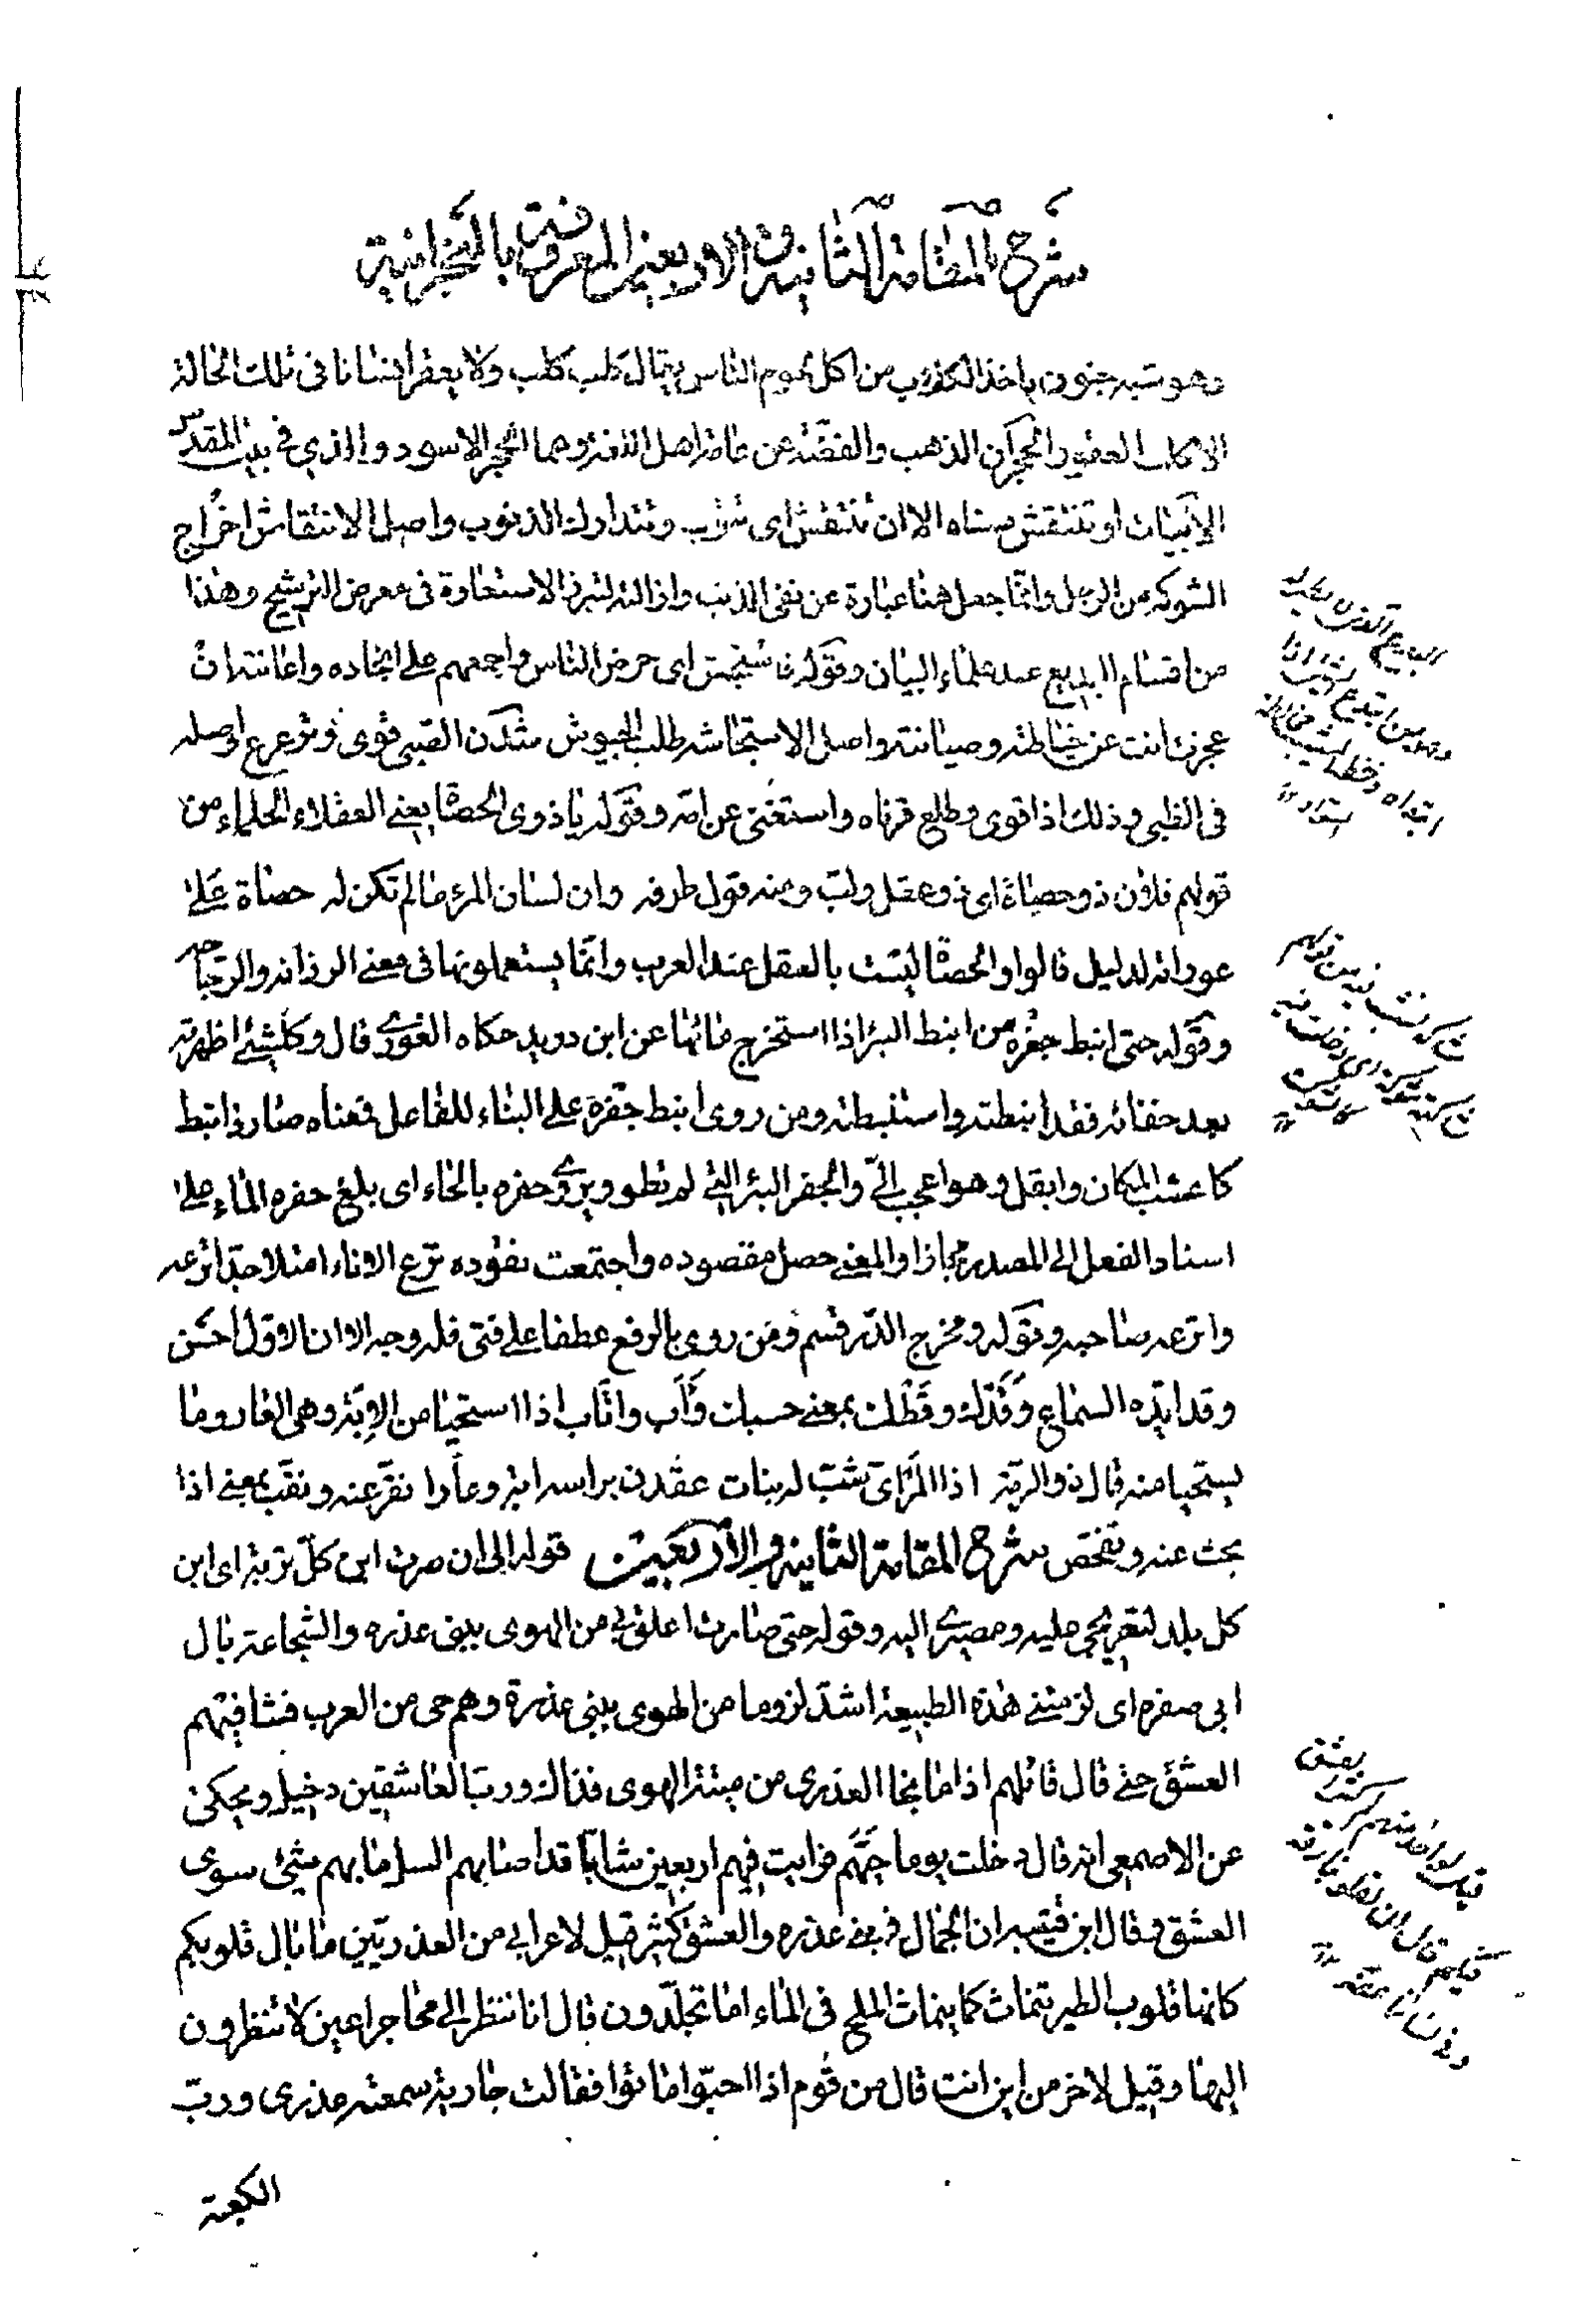 شرح المقامة الثانية و الاربعين المعروفة بالنجرانية
وهو شبه جنون ياخذ الكلاب من اكل لحوم الناس يقال كلب كلب ولا يعقر انسانا فى تلك الحالة
الا كلب العقير الحجران الذهب والفضة عن عامة اهل اللغة وهما الحجر الاسود والذي في بيت المقدس
الابيات او تنتقش معناه الا ان تنتقش اى تتوب وتتدارك الذنوب واصل الانتقاش اخراج
الشوكة من الرجل وانما جعل هنا عبارة عن نفى الذنب وازالته لتبرز الاستعارة فى معرض الترشيح وهذا
من اقسام البديع عند علماء البيان وقوله فاستجش اى حرض الناس واجمعهم على انجاده واعانته ان
عجزت انت عن حياطته وصيانته واصل الاستجاشه طلب الجيوش شدن الصبى قوى وترعرع واصله
فى الظبى وذلك اذا قوى وطلع قرناه واستغنى عن امه وقوله يا ذوى الحصا يعنى العقلاء الحلماء من
قولهم فلان ذو حصاة اى ذو عقل ولب ومنه قول طرفه وان لسان المرء ما لم تكن له حصاة على
عوراته لدليل قالوا والحصا ليست بالعقل عند العرب وانما يستعملونها فى معنى الرزانه والرجاحه
وقوله حتى انبط جفره من انبط البئر اذا استخرج مائها عن ابن دريد حكاه الغورى قال وكل شئ اظهرته
بعد خفائه فقد انبطته واستنبطته ومن روى انبط جفره على البناء للفاعل فمعناه صار ذا نبط
كاعشب المكان وابقل وهو اعجب الىّ والجفر البئر التى لم تطو ويروى حفره بالحاء اى بلغ حفره الماء على
اسناد الفعل الى المصدر مجازا والمعنى حصل مقصوده واجتمعت نقوده ترع الاناء امتلا جدا ترعه
واترعه صاحبه وقوله ومخرج الدر قسم ومن روى بالرفع عطفا على فتى فله وجه الا ان الاول احسن
وقد ايده السماع وقدك وقطك بمعنى حسبك وأب واتّأب اذا استحيا من الإبة وهى العار وما
يستحيا منه قال ذو الرمة اذا المرئى شب له بنات عقدن براسه ابة وعارا نقر عنه ونقب بمعنى اذا
بحث عنه وتفحص شرح المقامة الثانية والاربعين قوله الى ان صرت ابن كل تربة اى ابن
كل بلد لتعريجى عليه ومصيرى اليه وقوله حتى صارت اعلق بى من الهوى ببنى عذره والشجاعة بال
ابى صفره اى لزمتنى هذة الطبيعة اشد لزوما من الهوى ببنى عذرة وهم حى من العرب فشا فيهم
العشق حتى قال قائلهم اذا ما نجا العذرى من ميتة الهوى فذاك ورب العاشقين دخيل ويحكى
عن الاصمعى انه قال دخلت يوما حيهم فرايت فيهم اربعين شابا قد اصابهم السل ما بهم شئ سوى
العشق وقال ابن قتيبه ان الجمال فى بنى عذره والعشق كثير قيل لاعرابى من العذريين ما بال قلوبكم
كانها قلوب الطير تنماث كما ينماث الملح فى الماء اما تجلدون قال انا ننظر الى محاجر اعين لا تنظرون
اليها وقيل لاخر من اين انت قال من قوم اذا احبوا ماتوا فقالت جارية سمعته عذرى ورب
الكعبة